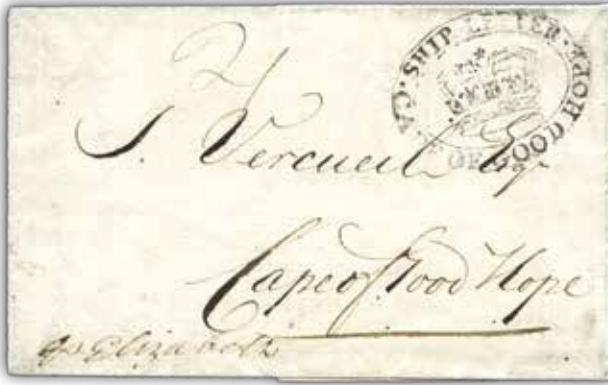 SHIP LETTER
CAPE OF GOOD HOPE
2/
J. Vercueil Esqr
Cape of Good Hope
pr Elizabeth